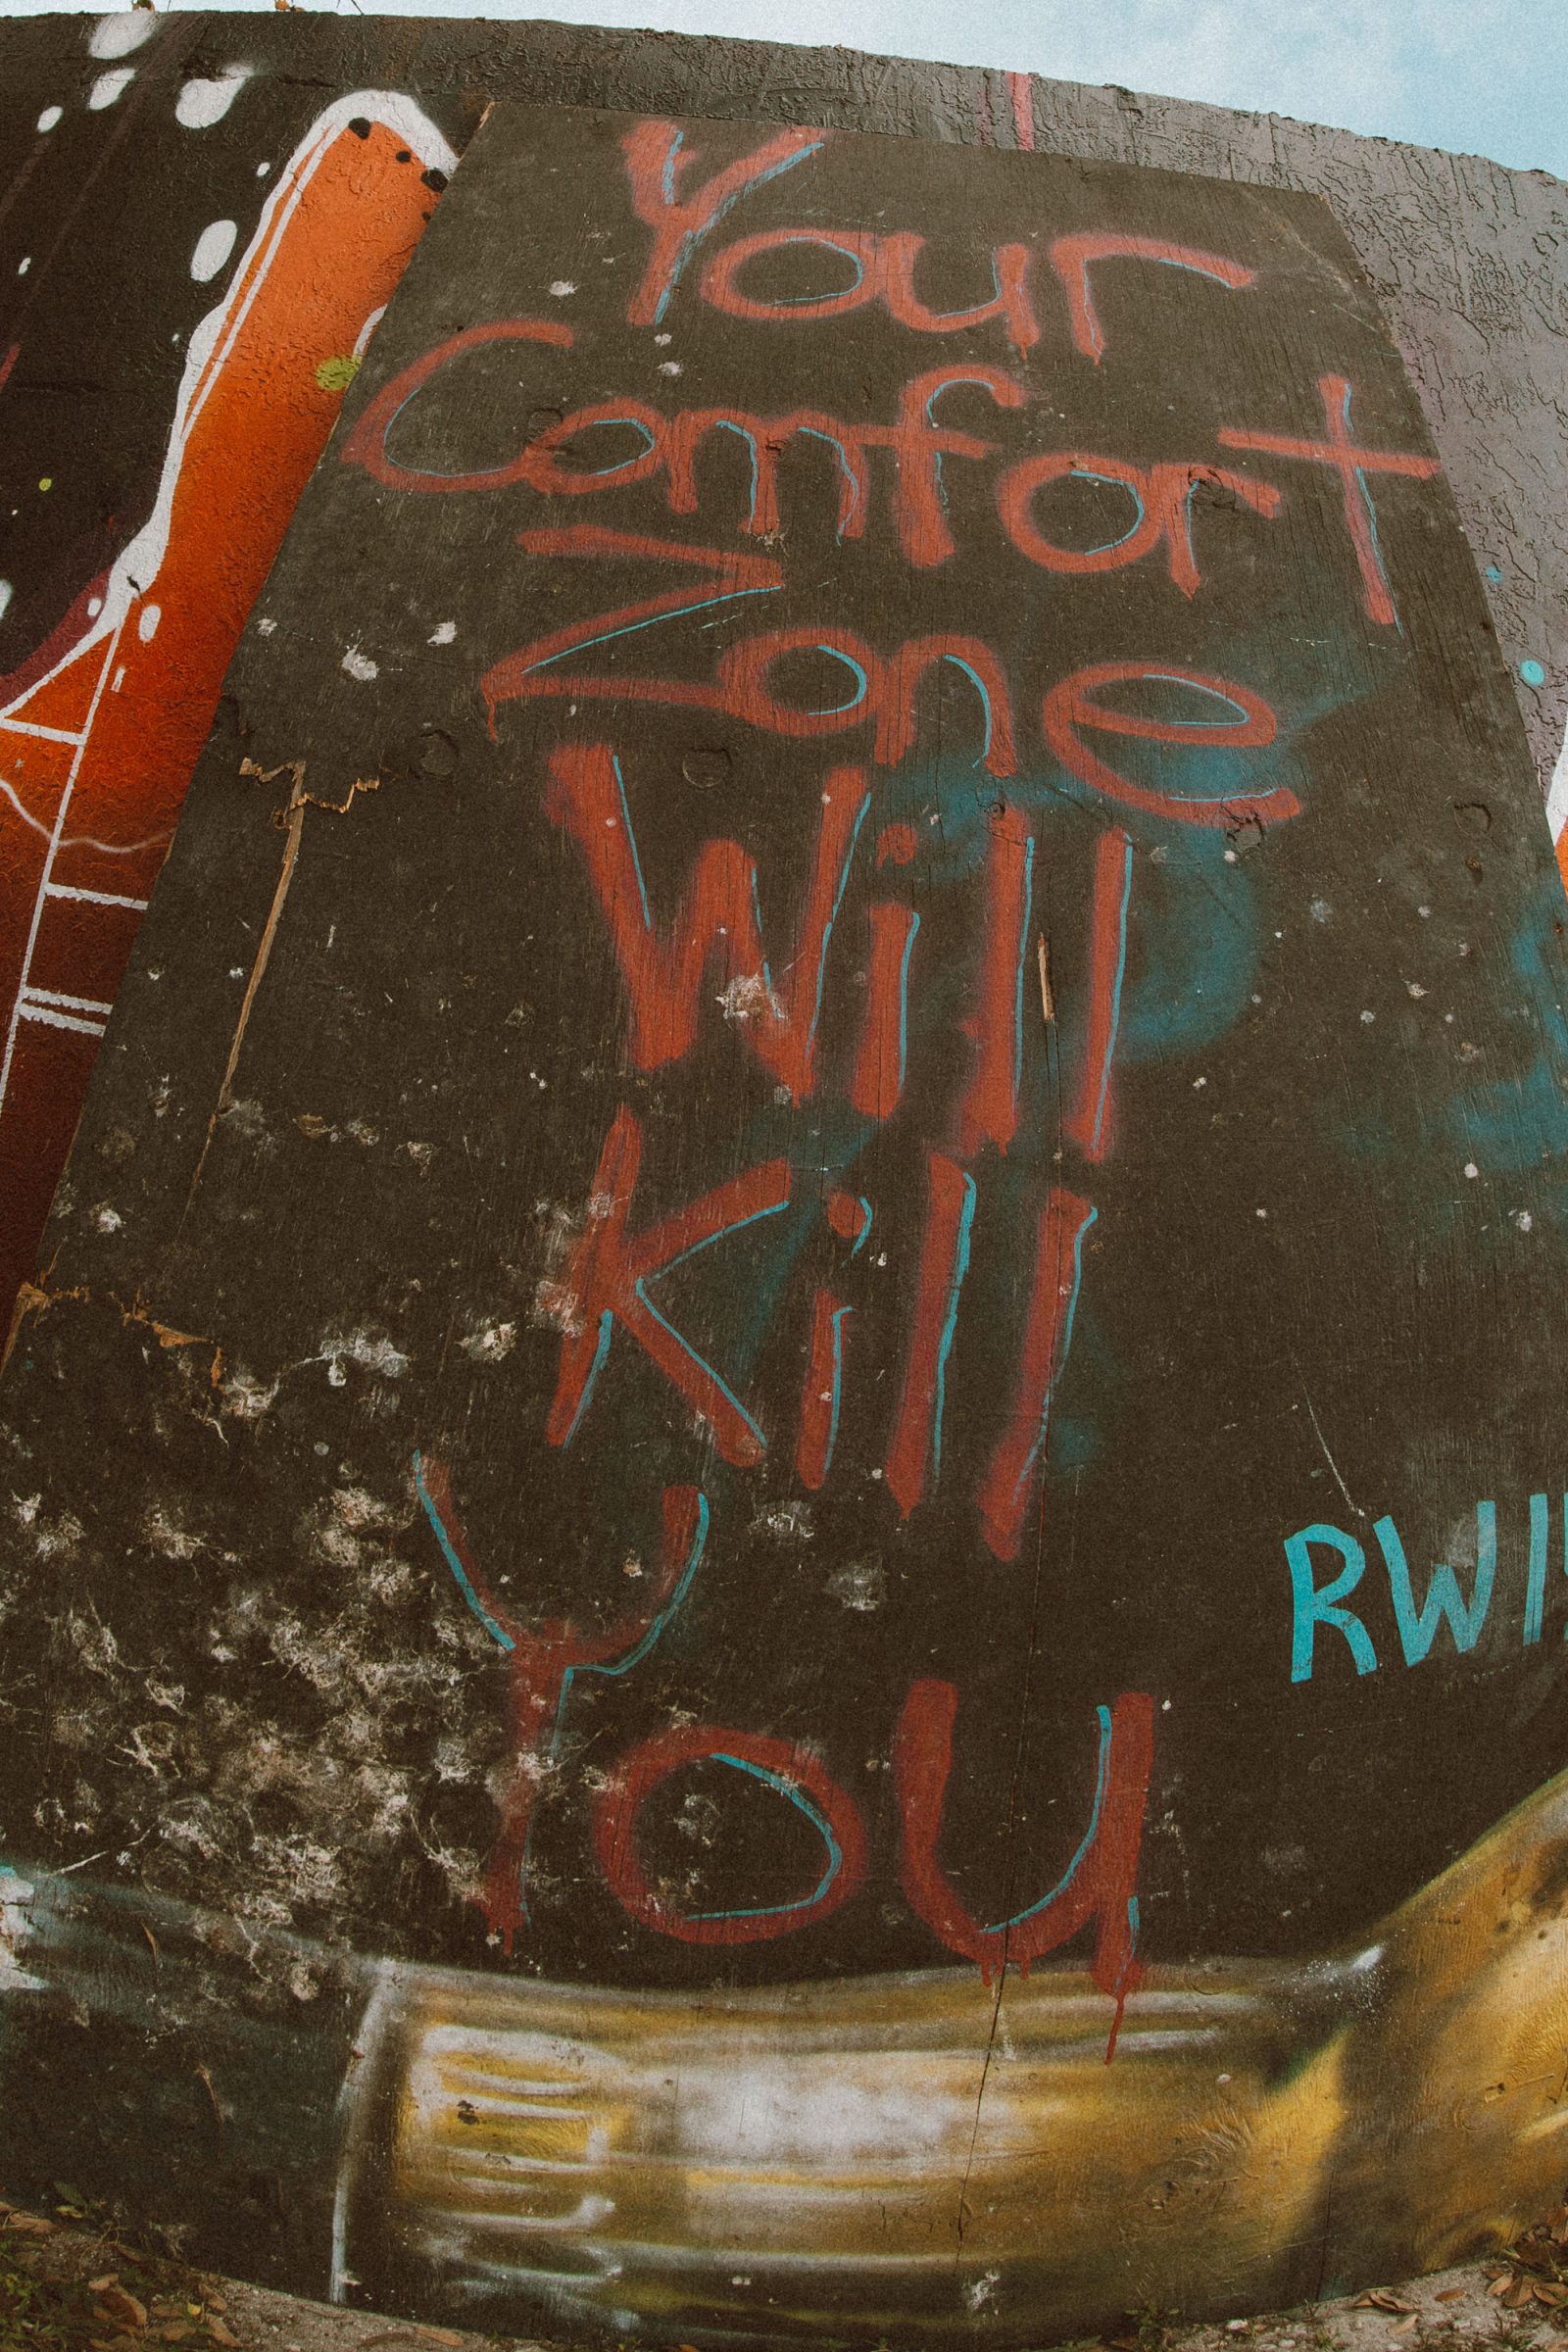 Your
Comfort
Zone
Will
Kill
You